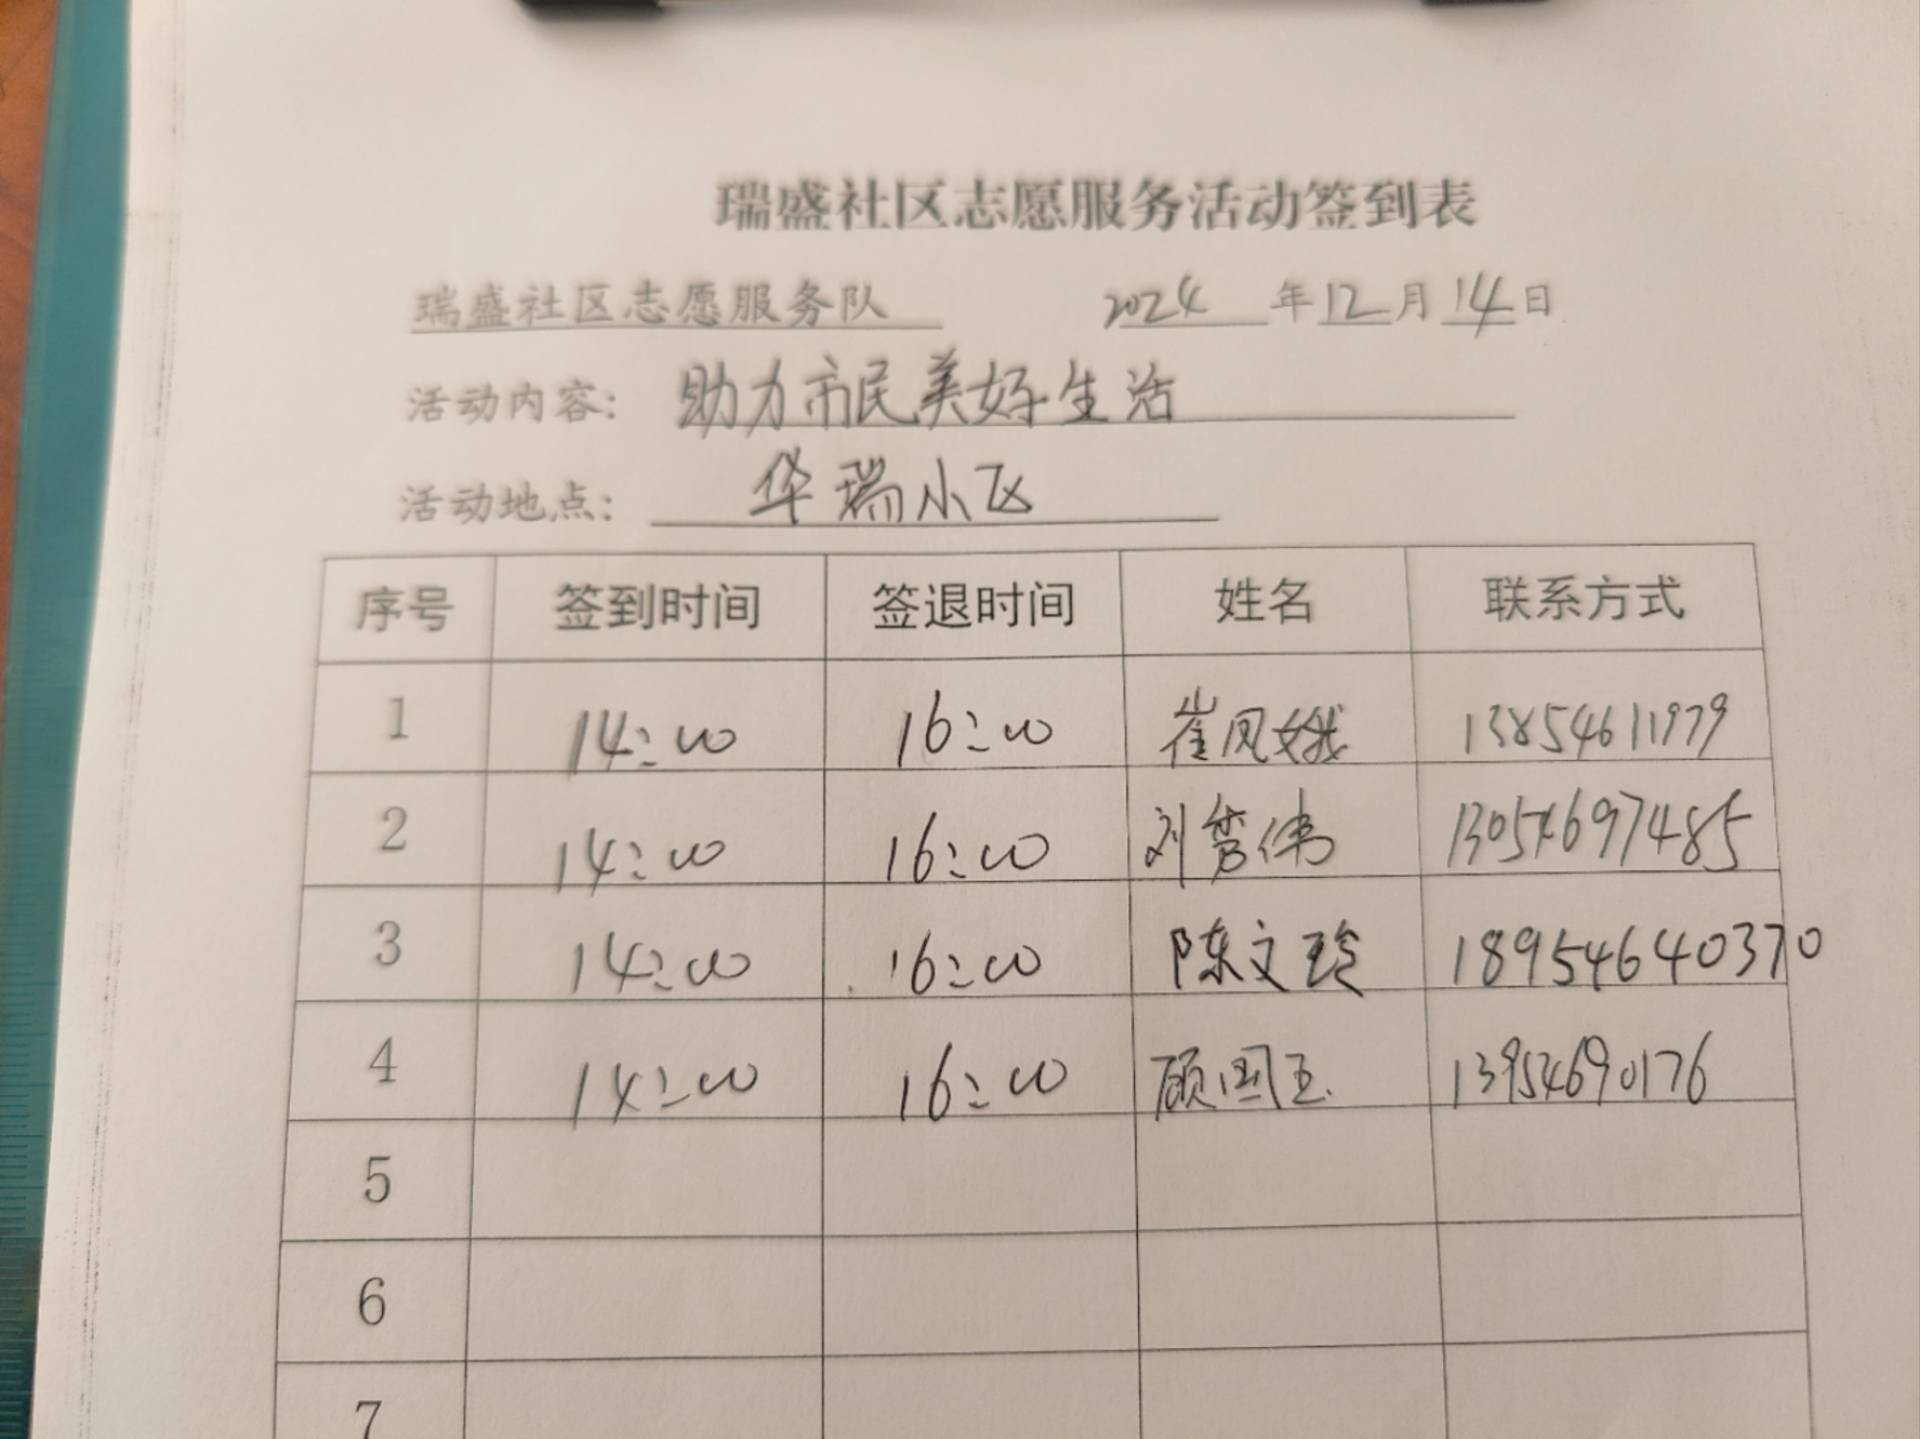 瑞盛社区志愿服务活动签到表
瑞盛社区志愿服务队 2024 年 12 月 14 日
活动内容： 助力市民美好生活
活动地点： 华瑞小区
序号 签到时间 签退时间 姓名 联系方式
1 14:00 16:00 崔凤娥 13854611979
2 14:00 16:00 刘 伟 13054697485
3 14:00 16:00 陈文玲 18954640370
4 14:00 16:00 顾国玉 13954690176
5
6
7